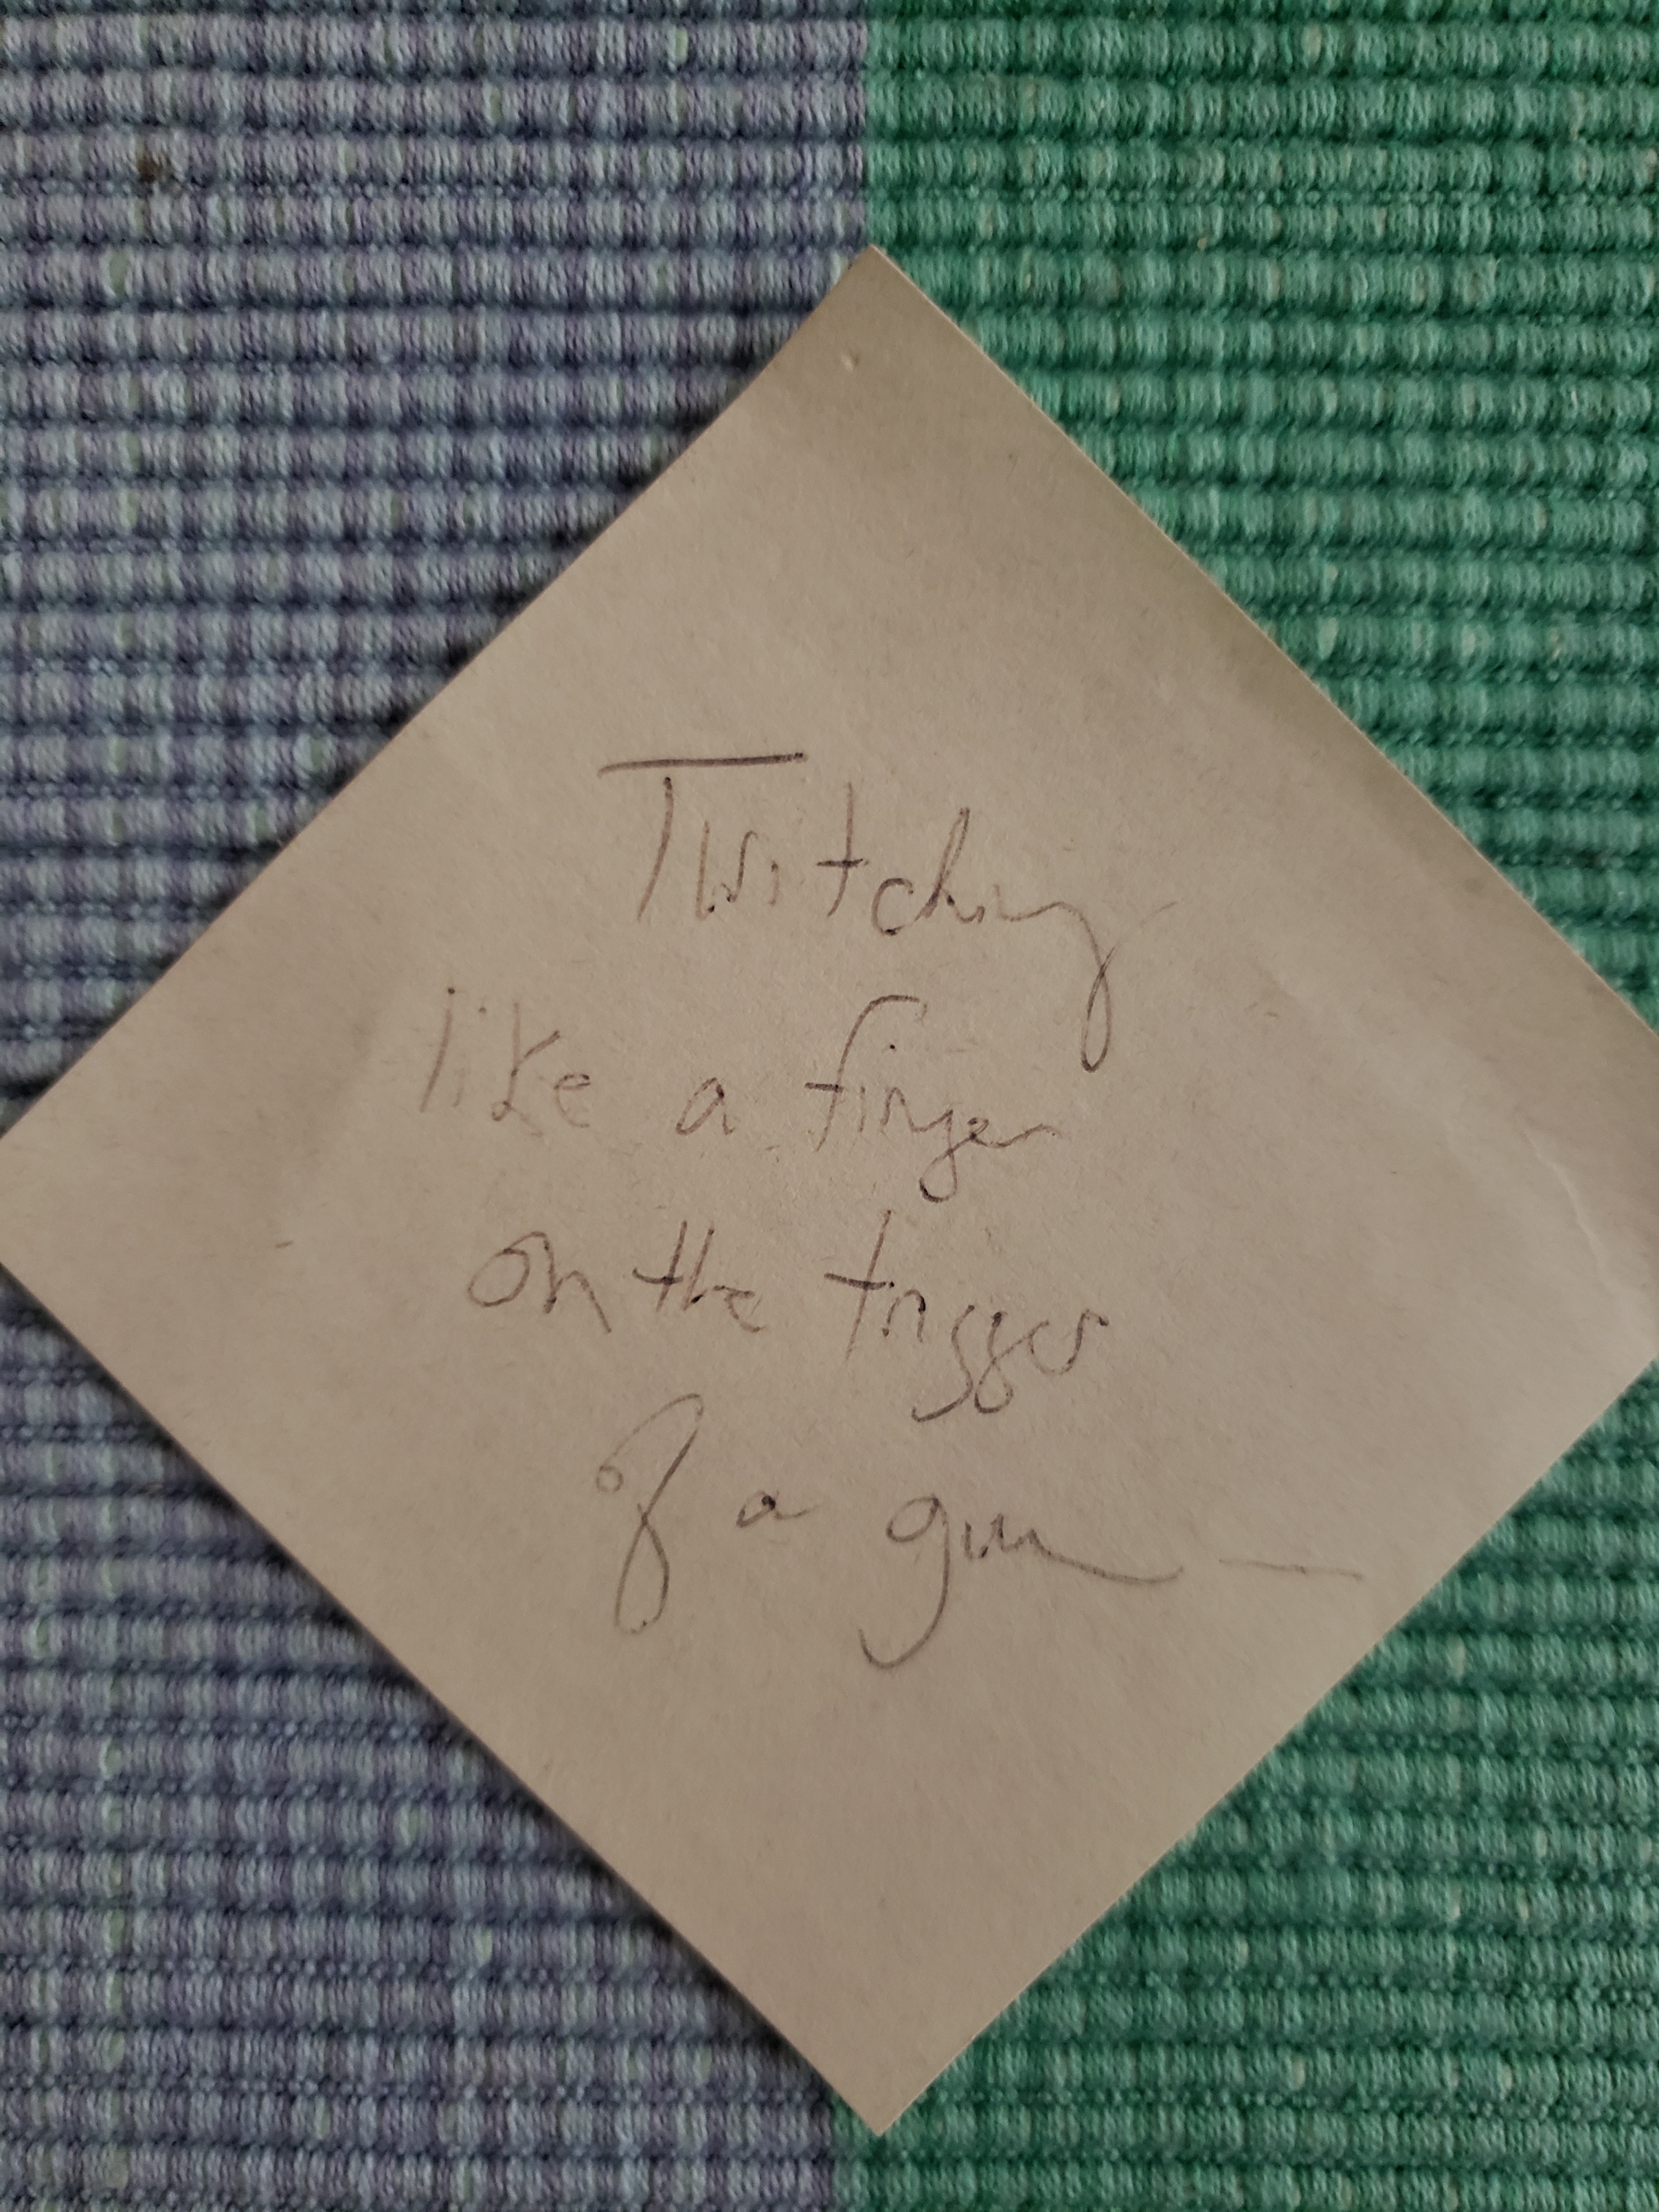 Twitching
like a finger
on the trigger
of a gun —